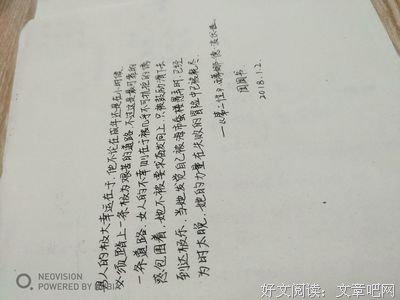 男人的极大幸运在于,他不论在成年还是在小时候,
必须踏上一条极为艰苦的道路,不过这是最可靠的
一条道路,女人的不幸则在于被几乎不可抗拒的诱
惑包围着,她不被要求奋发向上,只被鼓励滑下去
到达极乐。当她发觉自己被海市蜃楼愚弄时,已经
为时太晚,她的力量在失败的冒险中已被耗尽。
——《第二性》西蒙·德·波伏娃
2018.1.2.
NEOVISION
POWERED BY NUBIA
好文阅读:文章吧网